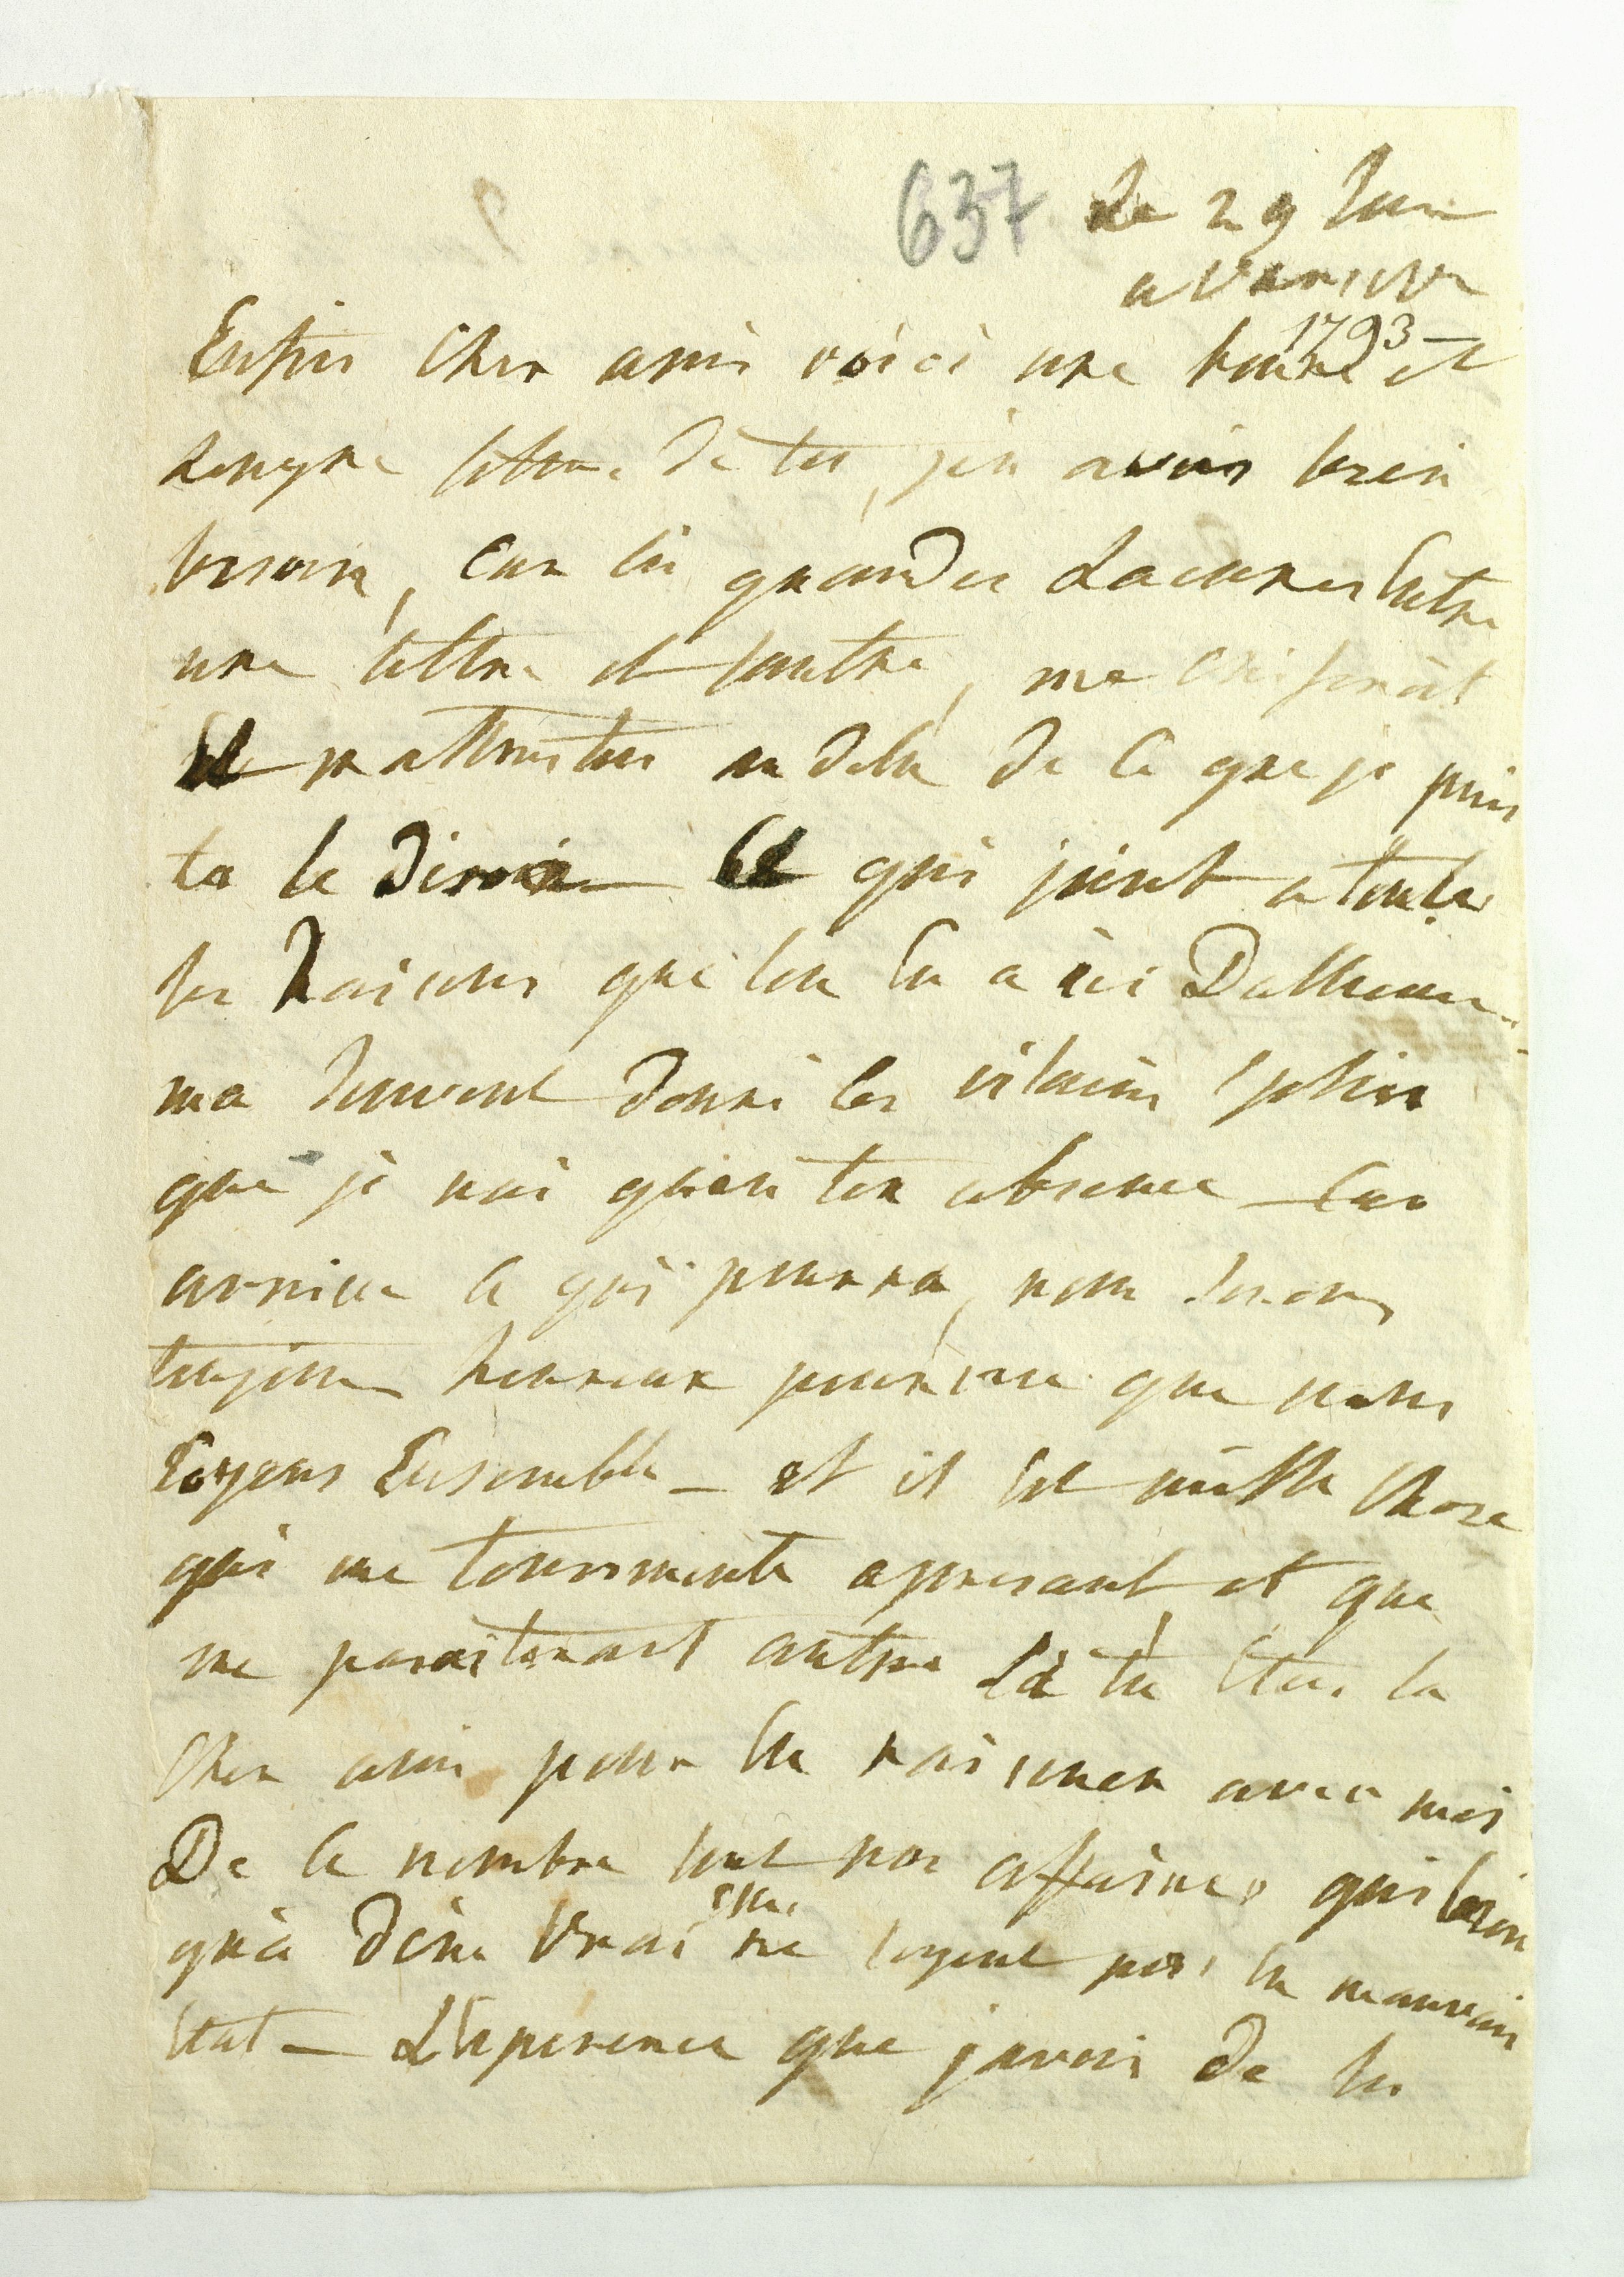 637 Le 29 Juin
a Varsovie
1793
Enfin Cher ami voici une bonne et
longue lettre de toi, jen avois bien
besoin, Car les grandes Lacunes Entre
une lettre et lautre, me
Et mattristoit au dela de Ce que je puis
te le dire Et qui joint a toute
les Raisons que lon En a ici Dailleurs
ma souvent donné les vilains Spleen
que je nai quen ton absence — Car
arrive Ce qui pourra, nous serons
toujours heureux pourvue que nous
Soyons Ensemble — et il est mille Chose
qui me tourmente apresant et que
me paraitroit autre Si tu Etois la
Cher ami pour En raisoner avec moi
De Ce nombre sont nos affaires qui bien
qu'a dire Vrai elle ne soyent pas En mauvais
Etat — LEsperence que javois de les